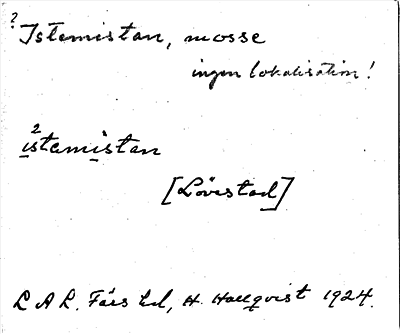 ? Istemistan, mosse
ingen lokalisation!
2
istemistan
[Lövestad]
L A L. Färs hd, H. Hallqvist 1924.